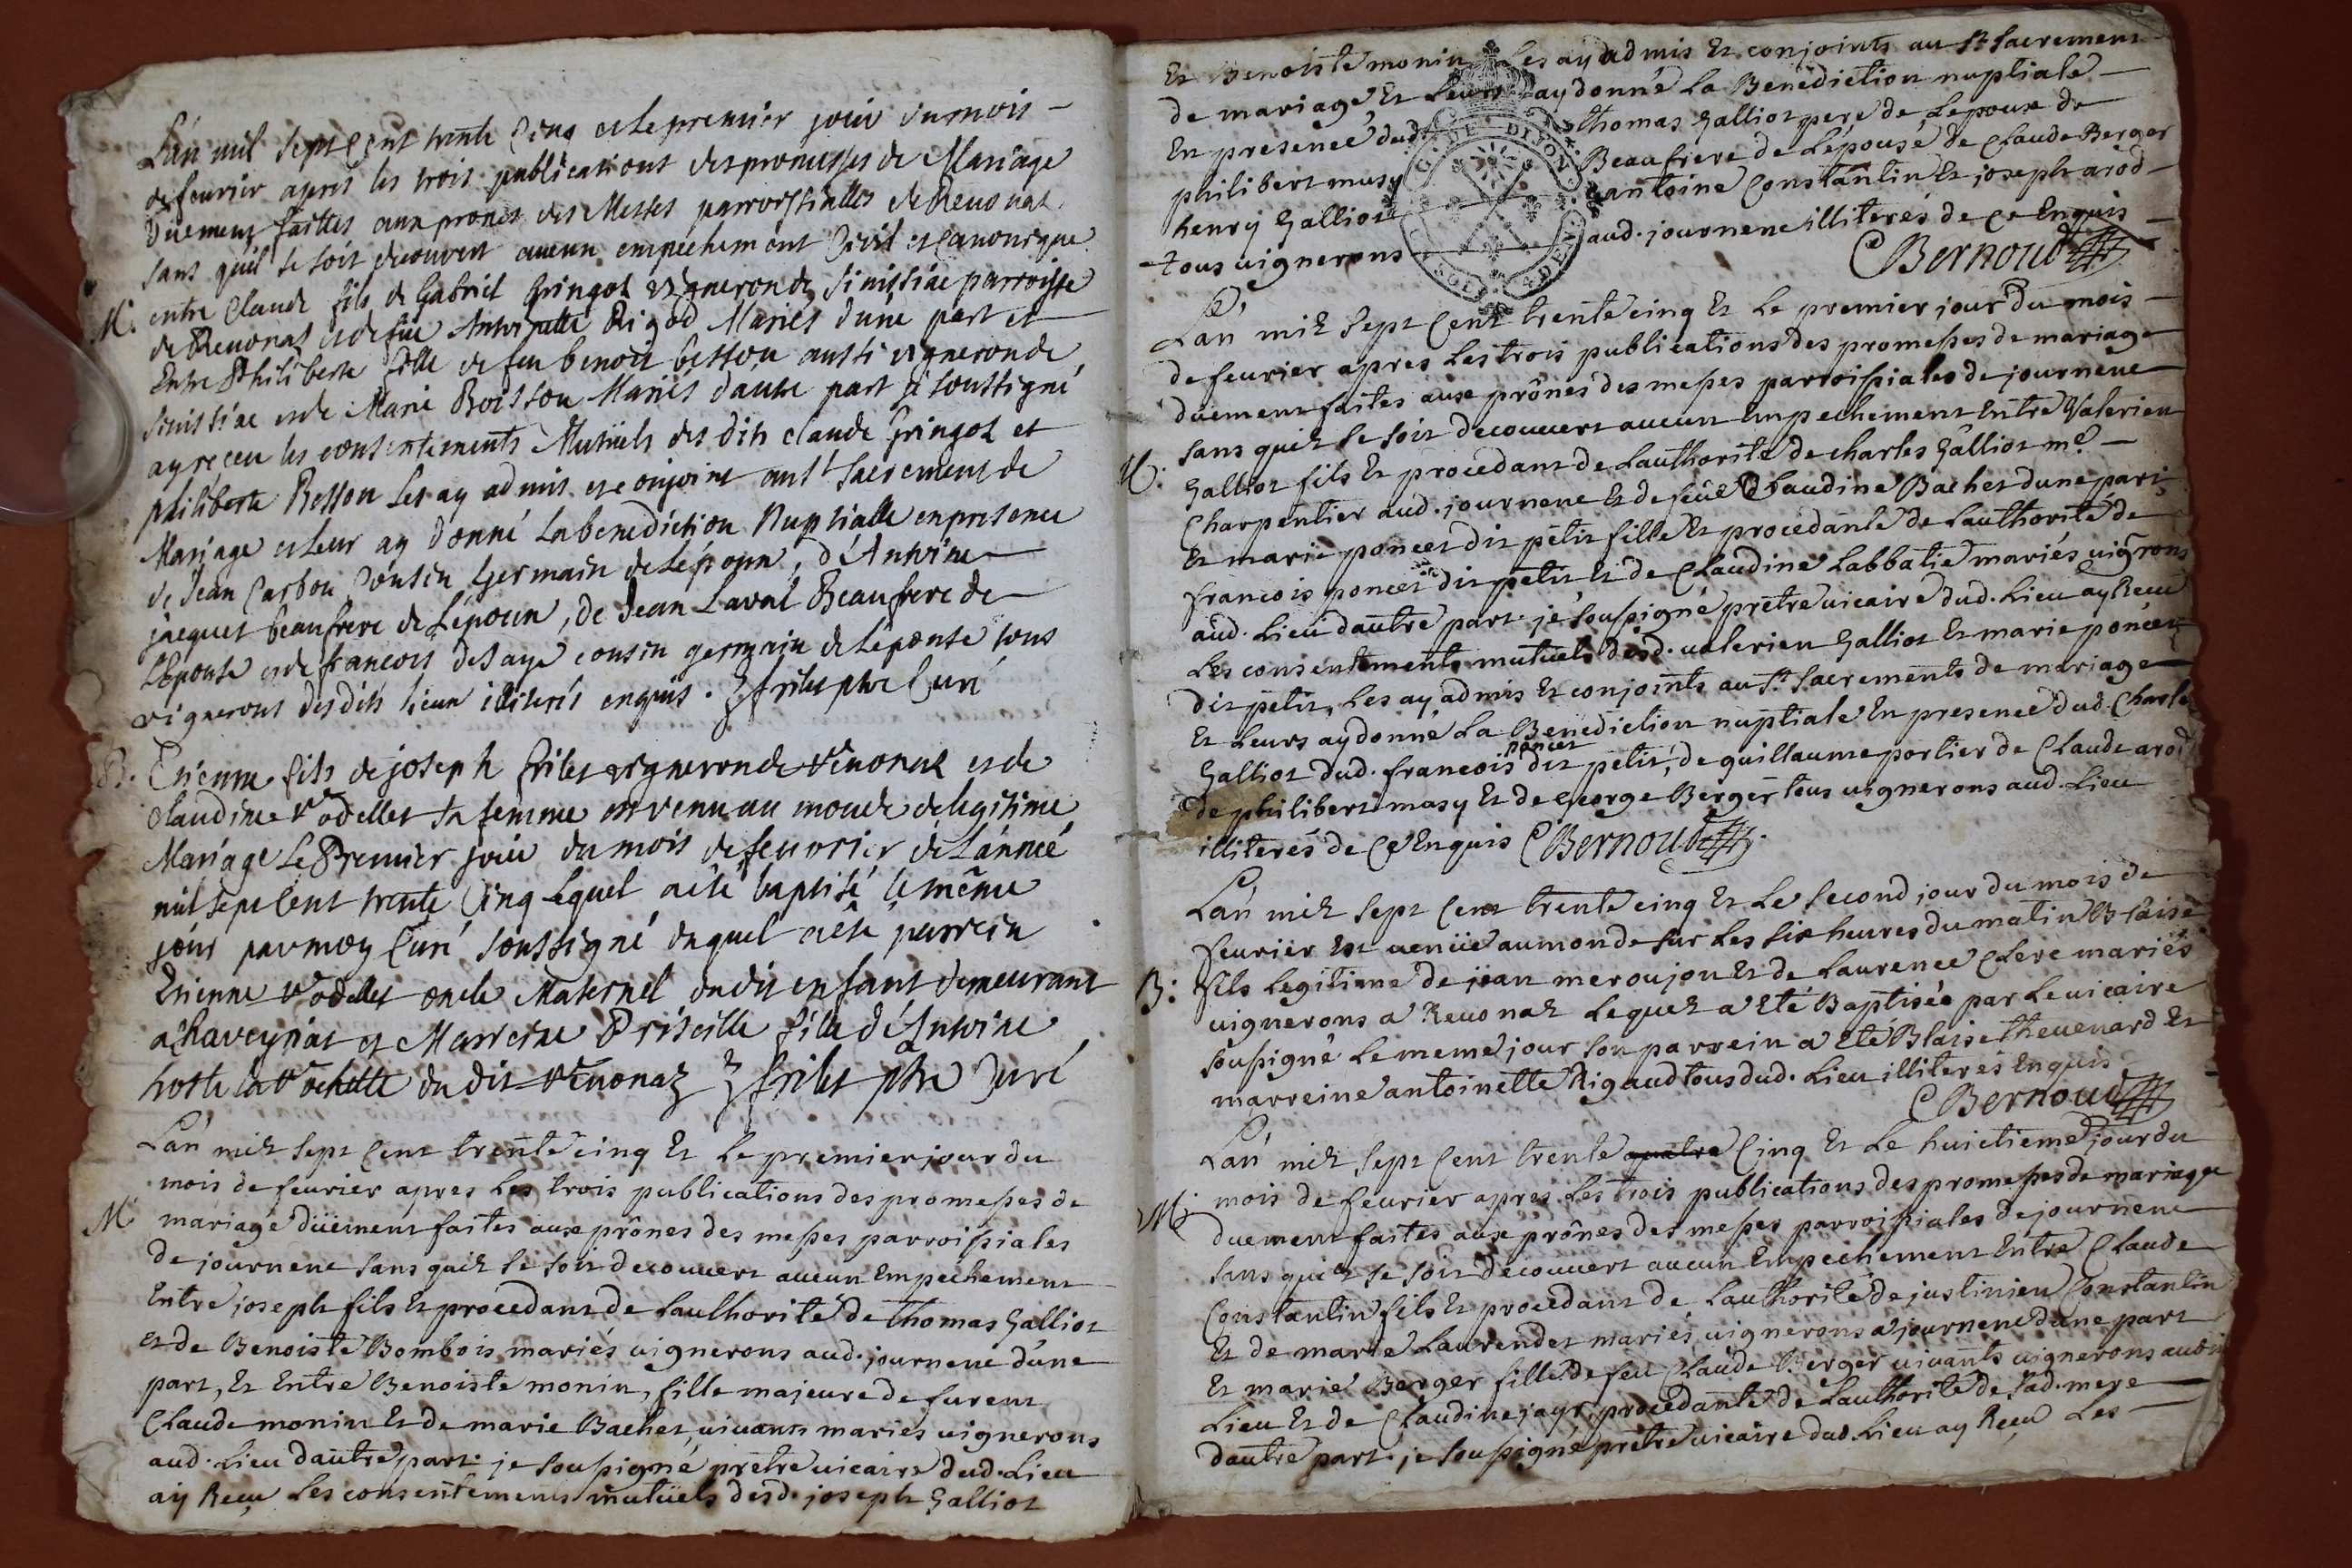 L'an mil sept cent trente cinq et le premier jour du mois
de feurier apres les trois publications des promesses de Mariage
düement faittes aux prones des Messes parroissialles de Reuonas
sans qu'il se soit decouvert aucun empéchement Civil et Canonique
M. entre Claude fils de Gabriel Gringoz vigneron de Senissiae parroisse
de Reuonas et de feüe Anthoinette Rigod Mariés d'une part et
Entre Philiberte fille de feu benoit besson aussi vigneron de
Senissiae et de Marie Boisson Mariés dautre part je soussigné
ay reçeu les consentements Mutuels des dits claude Gringoz et
philiberte Besson les ay admis et conjoint au st sacrement de
Mariage et leur ay donné la benediction Nuptialle en presence
de Jean Carbon Cousin Germain de Lépoux, d'Antoine
jacquet beaufrere de Lépoux, de Jean Laval Beaufrere de
L'epouse et de francois desaye cousin germain de Lépouse tous
vignerons des dits lieux illiterés enquis. frilet ptre Curé
B. Etienne fils de joseph frilet vigneron de Reuonas et de
Claudine Vodellet sa femme est venu au monde de legitime
Mariage Le Premier jour du mois de feuvrier de L'année
mil sept Cent trente Cinq Lequel a été baptisé le même
jour par moy Curé soussigné duquel a été parrein
Etienne Vodellet oncle Maternel du dit enfant demeurant
a haveyriat et Marreine Priscille fille d'Antoine
hoste la du dit Reuonaz frilet ptre Curé
L'an mil sept Cent trente cinq Et le premier jour du
mois de feurier apres les trois publications des promesses de
M mariage düement faites aux prônes des messes parroissiales
de journene sans quil se soit decouuert aucun Empéchement
Entre joseph fils Et procedant de Lauthorité de thomas Galliot
et de Benoiste Bombois mariés uignerons aud. journene d'une
part, Et Entre Benoiste monin, fille majeure de furent
Claude monin Et de marie Bachet, uiuants mariés uignerons
aud. Lieu dautre part. je soussigné prétre uicaire dud. Lieu
ay Reçu Les consentements mutüels desd. joseph Galliot
Et Benoiste monin Les ay admis Et conjoints au st sacrement
de mariage Et Leurs ay donné La Benediction nuptiale
En presence dud. thomas Galliot pere de Lepoux de
philibert musy Beaufrere de Lépouse de Claude Berger
henry Galliot antoine Constantin Et joseph arod
tous uignerons aud. journene illiterés de ce Enquis
CBernoud
G. DE DIJON
L'an mil sept Cent trente cinq Et le premier jour du mois
de feurier apres Les trois publications des promesses de mariage
düement faites aux prônes des messes parroissiales de journene
sans quil se soit decouuert aucun Empechement Entre Valerien
M. Galliot fils Et procedant de Lauthorité de charles Galliot me
Charpentier aud. journene Et de feüe Claudine Bachet dune part
Et marie poncet dit petit fille Et procedante de Lauthorité de
francois poncet dit petit Et de Claudine Labbatie mariés uigrons
aud. Lieu dautre part. je soussigné prétre uicaire dud. Lieu ay Reçu
Les consentements mutuels desd. ualerien Galliot Et marie poncet
dit petit, Les ay admis Et conjoints au st. sacrements de mariage
Et Leurs ay donné La Benediction nuptiale En presence dud. Charle
Galliot dud. francois poncet dit petit, de guillaume portier de Claude arod
de philibert masy Et de George Berger tous uignerons aud. Lieu
illiterés de Ce Enquis CBernoud
L'an mil sept Cent trente cinq Et Le second jour du mois de
feurier Est uenüe au monde sur Les six heures du matin Blaise
B: fils Legitime de jean meroujon Et de Laurence Clere mariés
uignerons a Reuonas Lequel a Eté Baptisée par Le uicaire
soussigné Le meme jour son parrein a Eté Blaise theuenard Et
marreine antoinette Rigaud tous dud. Lieu illiterés Enquis
CBernoud
L'an mil sept Cent trente quatre Cinq Et Le huictieme jour du
M. mois de feurier apres Les trois publications des promesses de mariage
duement faites aux prônes des messes parroissiales de journene
sans quil se soit decouuert aucun Empechement Entre Claude
Constantin fils Et procedant de Lauthorité de justinien Constantin
Et de marie Laurendet mariés uignerons a journene dune part
Et marie Berger fille de feu Claude Berger uiuants uignerons audit
Lieu Et de Claudine jayr, procedante de Lauthorité de sad. mere
dautre part. je soussigné prétre uicaire dud. Lieu ay Reçu Les